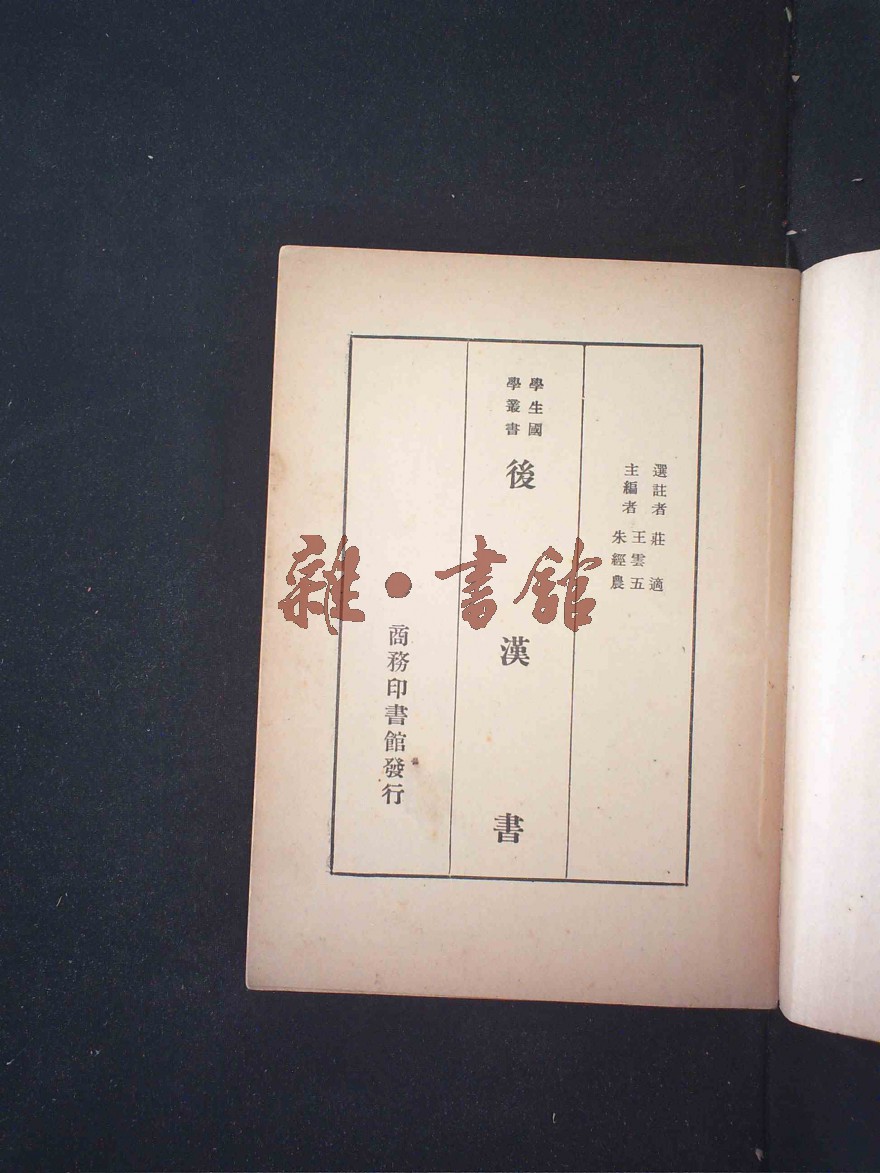 選註者 莊適
主編者 王雲五
朱經農
學生國
學叢書
後漢書
商務印書館發行
雜·書館